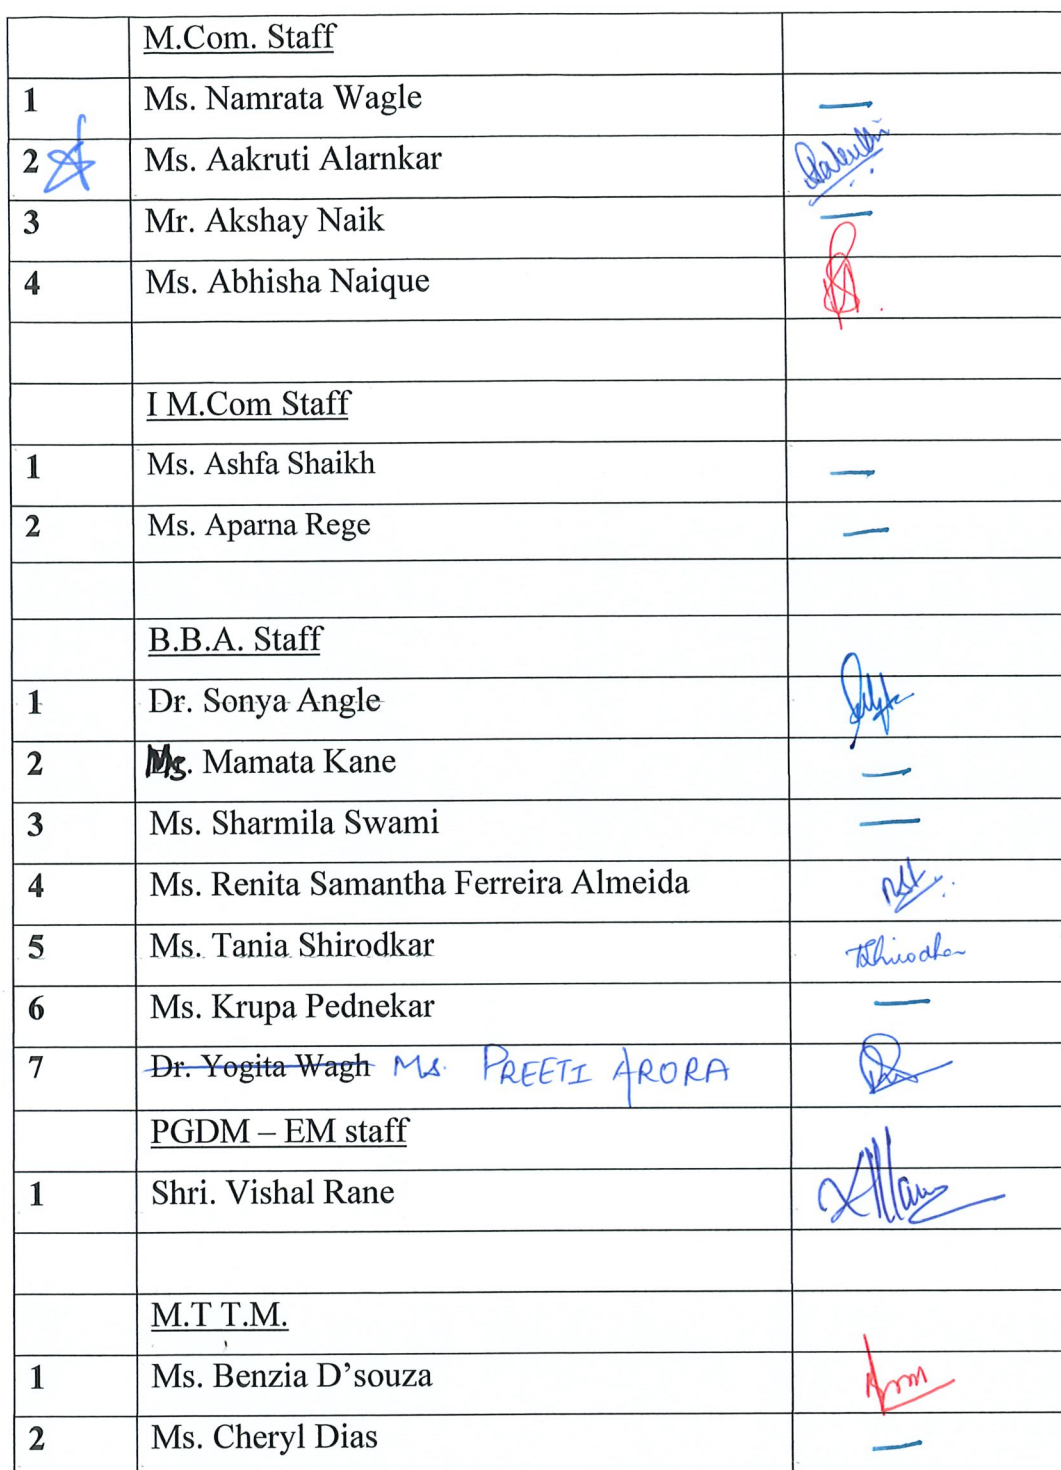 M.Com. Staff
1 Ms. Namrata Wagle —
2 Ms. Aakruti Alarnkar
3 Mr. Akshay Naik —
4 Ms. Abhisha Naique
I M.Com Staff
1 Ms. Ashfa Shaikh —
2 Ms. Aparna Rege —
B.B.A. Staff
1 Dr. Sonya Angle
2 Ms. Mamata Kane —
3 Ms. Sharmila Swami —
4 Ms. Renita Samantha Ferreira Almeida
5 Ms. Tania Shirodkar TShirodkar
6 Ms. Krupa Pednekar —
7 Dr. Yogita Wagh Ms. PREETI ARORA
PGDM – EM staff
1 Shri. Vishal Rane
M.T T.M.
1 Ms. Benzia D'souza
2 Ms. Cheryl Dias —